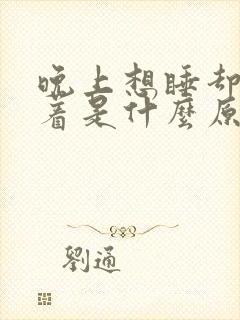 晚上想睡却
着是什麼原
劉通